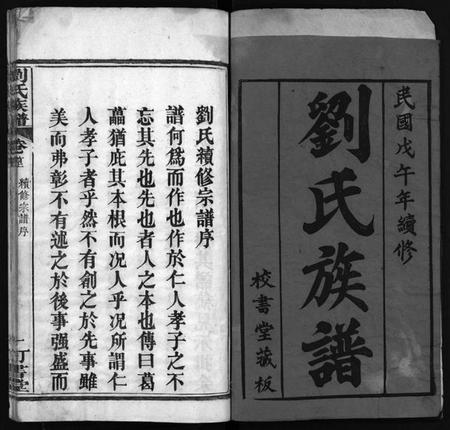 民國戊午年續修
劉氏族譜
校書堂藏板
劉氏續修宗譜序
譜何爲而作也作於仁人孝子之不
忘其先也先也者人之本也傳曰葛
藟猶庇其本根而况人乎况所謂仁
人孝子者乎然不有創之於先事雖
美而弗彰不有述之於後事强盛而
劉氏族譜
卷首
續修宗譜序
一
校書堂